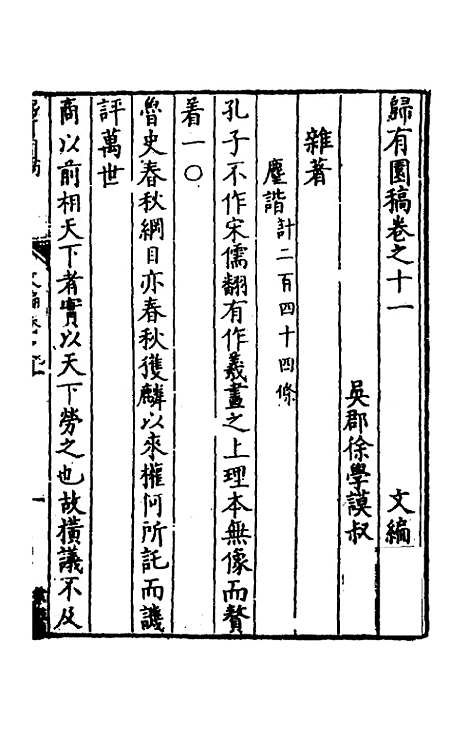 歸有園稿卷之十一 文編
吳郡徐學謨叔
雜著
麈談計二百四十四條
孔子不作宋儒翻有作羲畫之上理本無像而贅
看一〇
魯史春秋綱目亦春秋獲麟以來權何所託而譏
評萬世
商以前相天下者實以天下勞之也故橫議不及